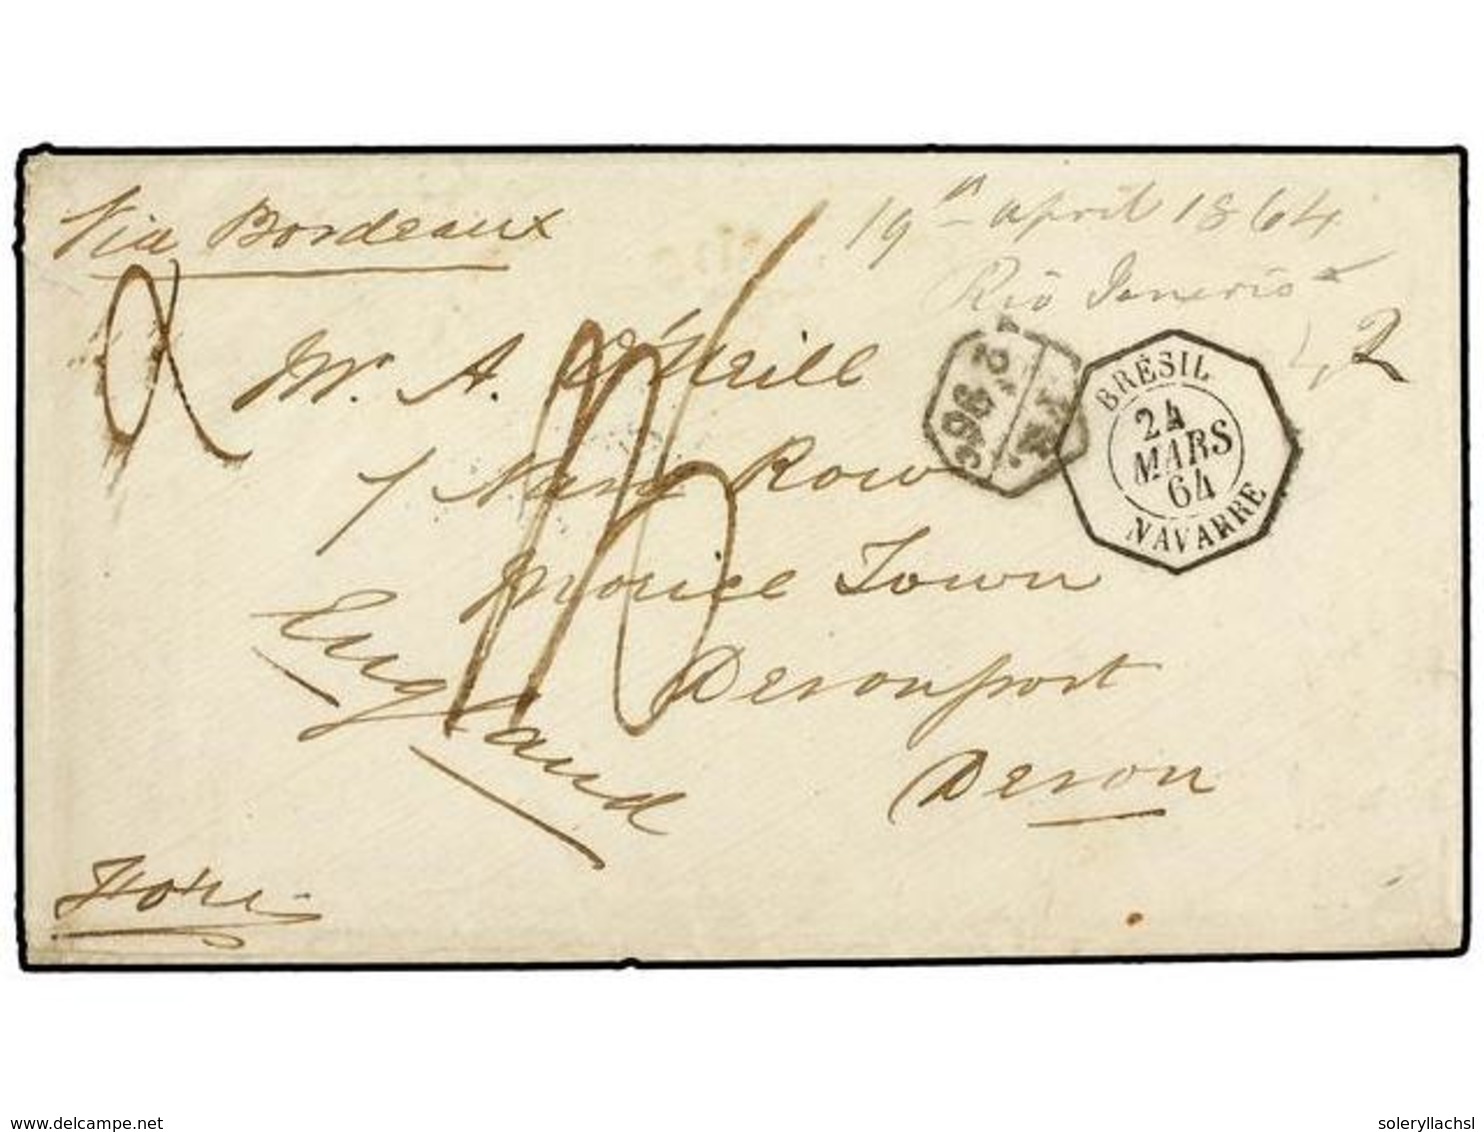 Via Bordeaux
19th April 1864
Rio Janerio
2
2
Mr. A. O'Neill
1/6
1 Navy Row
Morice Town
Devonport
Devon
England
BRÉSIL
24
MARS
64
NAVARRE
www.delcampe.net
soleryllachsl